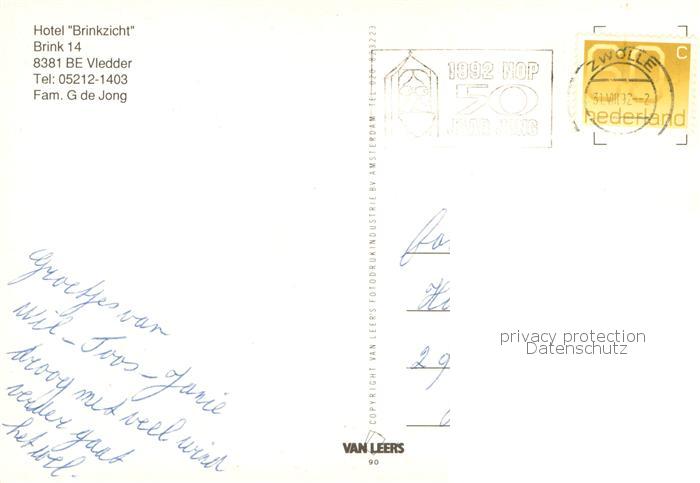 Hotel "Brinkzicht"
Brink 14
8381 BE Vledder
Tel: 05212-1403
Fam. G de Jong
Groetjes van
Wil - Toos - Janie
droog met veel wind
verder gaat
het wel.
COPYRIGHT VAN LEER'S FOTODRUKINDUSTRIE BV AMSTERDAM: TEL 020
VAN LEERS
90
1892 NOP
50
JAAR JONG
ZWOLLE
31 VIII 92
C
nederland
Ho
29
privacy protection
Datenschutz